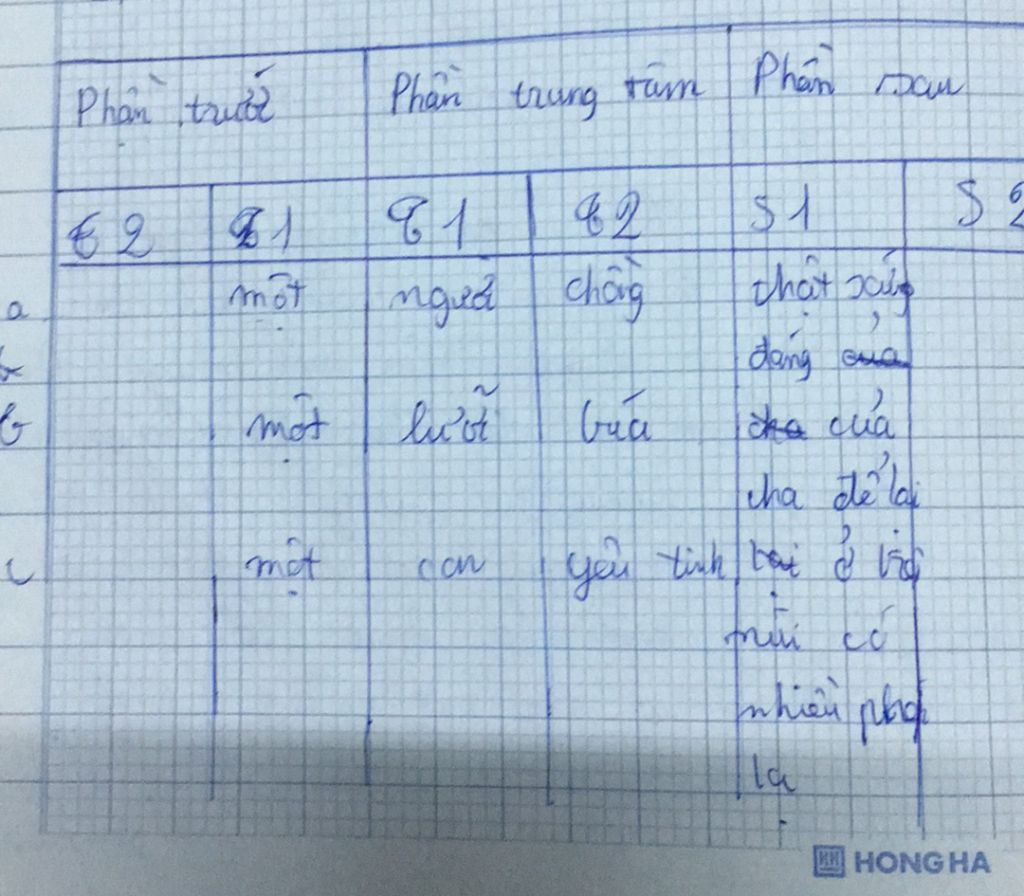 Phần trước Phần trung tâm Phần sau
t2 t1 T1 T2 S1 S2
a một người chồng thật xứng
đáng của
b một lưỡi búa cha của
cha để lại
c một con yêu tinh ở trên
núi có
nhiều phép
lạ
HONG HA